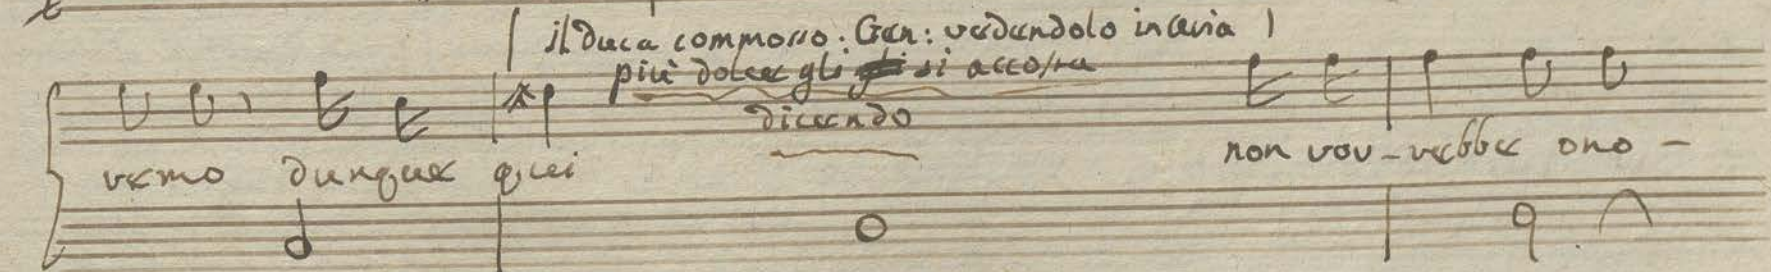 il Duca commosso: Gen: vedendolo in aria
più dolce gli si accosta
dicendo
remo dunque qui non vorrebbe ono-